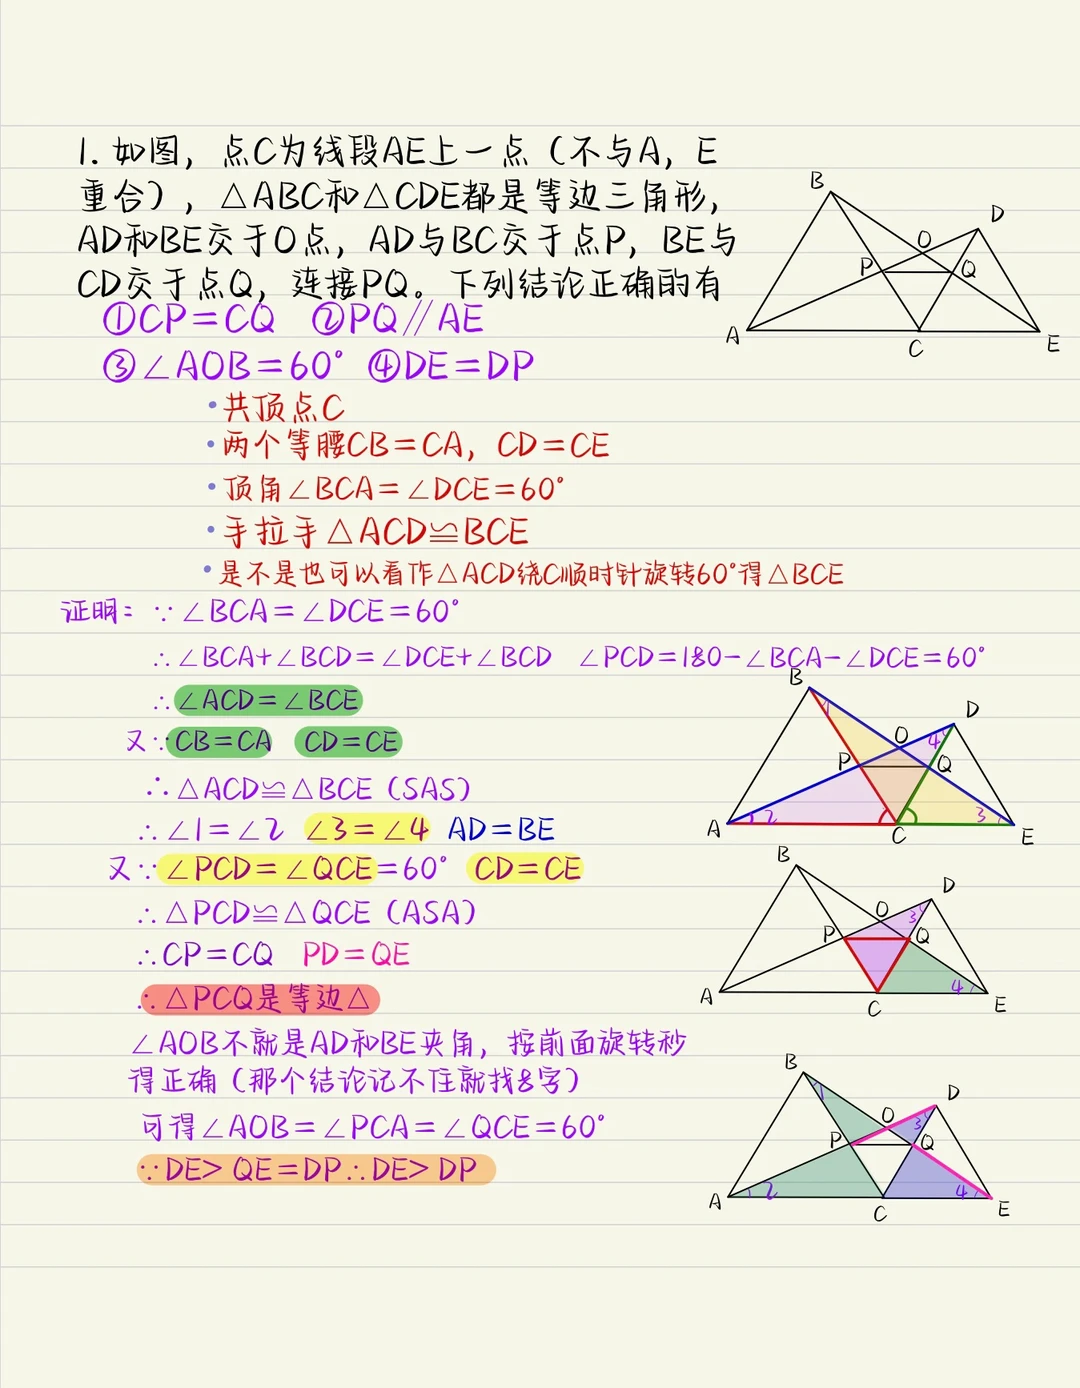 1. 如图，点C为线段AE上一点（不与A，E
重合），△ABC和△CDE都是等边三角形，
AD和BE交于O点，AD与BC交于点P，BE与
CD交于点Q，连接PQ。下列结论正确的有
①CP=CQ ②PQ∥AE
③∠AOB=60° ④DE=DP
B
D
O
P
Q
A
C
E
·共顶点C
·两个等腰CB=CA，CD=CE
·顶角∠BCA=∠DCE=60°
·手拉手△ACD≌BCE
·是不是也可以看作△ACD绕C顺时针旋转60°得△BCE
证明：∵∠BCA=∠DCE=60°
∴∠BCA+∠BCD=∠DCE+∠BCD ∠PCD=180-∠BCA-∠DCE=60°
∴∠ACD=∠BCE
又∵CB=CA CD=CE
∴△ACD≌△BCE（SAS）
∴∠1=∠2 ∠3=∠4 AD=BE
又∵∠PCD=∠QCE=60° CD=CE
∴△PCD≌△QCE（ASA）
∴CP=CQ PD=QE
∴△PCQ是等边△
∠AOB不就是AD和BE夹角，按前面旋转秒
得正确（那个结论记不住就找8字）
可得∠AOB=∠PCA=∠QCE=60°
∵DE>QE=DP∴DE>DP
B
1
D
O
4
P
Q
A
2
3
C
E
B
D
O
3
P
Q
A
4
C
E
B
1
D
O
3
P
Q
A
2
4
C
E